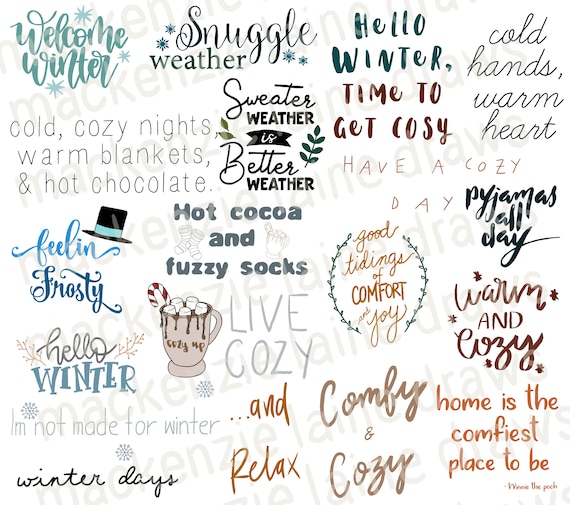 Welcome
winter
Snuggle
weather
Hello
WINTER,
TIME TO
GET COSY
cold
hands,
warm
heart
cold, cozy nights,
warm blankets,
& hot chocolate.
Sweater
WEATHER
is
Better
WEATHER
HAVE A COZY
DAY
pyjamas
all
day
feelin
Frosty
Hot cocoa
and
fuzzy socks
good
tidings
of
COMFORT
and
joy
warm
AND
Cozy
hello
WINTER
COZY UP
LIVE
COZY
Im not made for winter
winter days
...and
Relax
Comfy
&
Cozy
home is the
comfiest
place to be
- Winnie the pooh
mackenzie laine draws